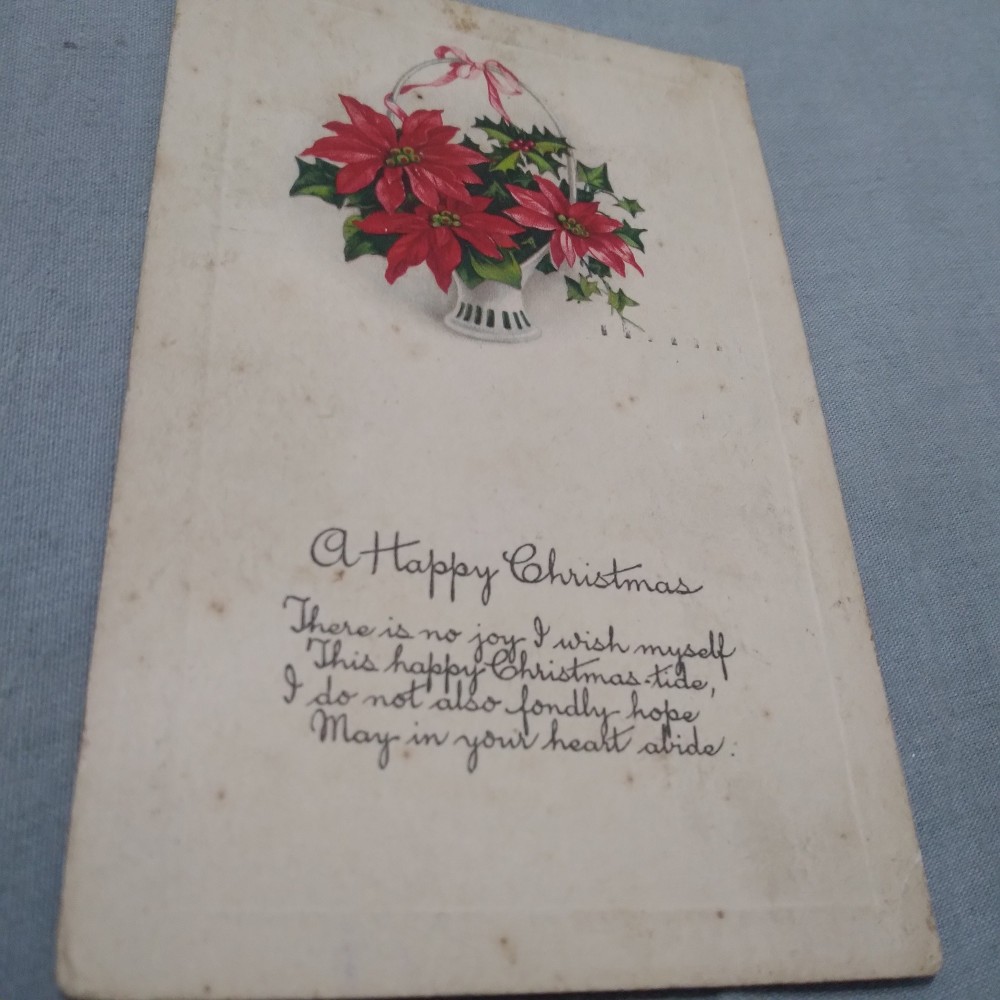 A Happy Christmas
There is no joy I wish myself
This happy Christmas-tide,
I do not also fondly hope
May in your heart abide.